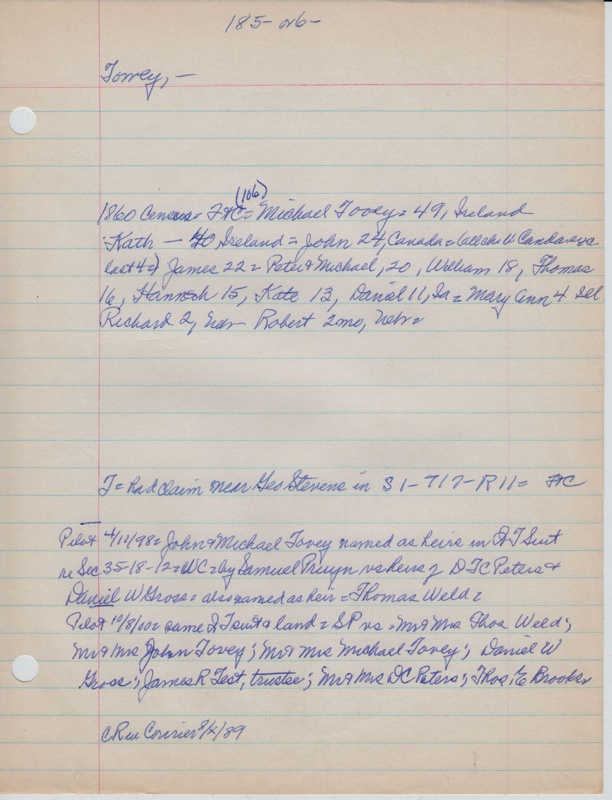 185- or 6-
Tovey, -
(106)
1860 Census FtC = Michael Tovey = 49, Ireland
Kath - 40 Ireland = John 24, Canada = (all chs Canada exc
last 4 =) James 22 = Peter & Michael, 20, William 18, Thomas
16, Hannah 15, Kate 13, Daniel 11, Ia = Mary Ann 4 Ill
Richard 2, Neb - Robert 2mo, Nebr =
T = had claim near Geo Stevens in S 1 - T17 - R 11 = FtC
Pilot 4/11/98 = John & Michael Tovey named as heirs in QT Suit
re Sec 35-18-12 = WC = by Samuel Pruyn vs heirs of DTC Peters &
Daniel W Gross = also named as heir = Thomas Weld =
Pilot 10/8/00 = same QT suit & land = SP vs = Mr & Mrs Thos Weed;
Mr & Mrs John Tovey; Mr & Mrs Michael Tovey; Daniel W
Gross; James R Test, trustee; Mr & Mrs DC Peters; Thos. E Brooks
Courier 8/ /89